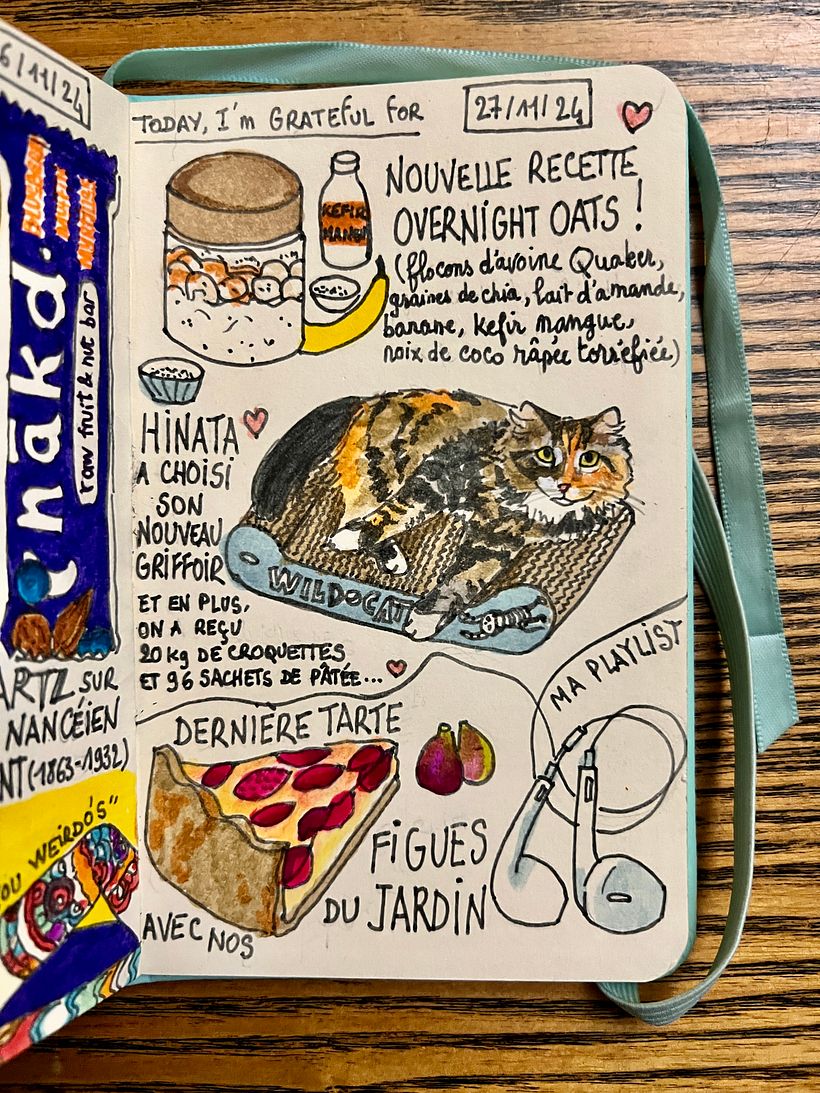 6/11/24
BLUEBERRY
MUFFIN
MYRTILLE
nākd.
raw fruit & nut bar
ARTZ SUR
NANCÉIEN
NT (1863-1932)
OU WEIRDÓS"
TODAY, I'm GRATEFUL FOR
27/11/24
KEFIR
MANGUE
NOUVELLE RECETTE
OVERNIGHT OATS !
(flocons d'avoine Quaker,
graines de chia, lait d'amande,
banane, kefir mangue,
noix de coco râpée torréfiée)
HINATA
A CHOISI
SON
NOUVEAU
GRIFFOIR
WILDCAT
ET EN PLUS,
ON A REÇU
20 kg DE CROQUETTES
ET 96 SACHETS DE PÂTÉE...
MA PLAYLIST
DERNIERE TARTE
AVEC NOS
FIGUES
DU JARDIN